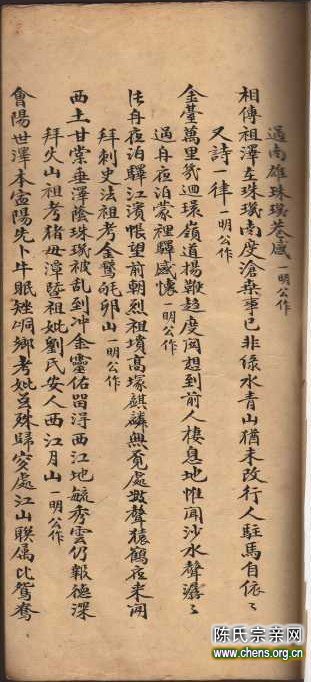 過南雄珠璣巷感 一明公作
相傳祖澤在珠璣南度滄桑事已非綠水青山猶未改行人駐馬自依〻
又詩一律 一明公作
金臺萬里幾迴環領道揚鞭趂度關想到前人棲息地惟聞沙水聲潺〻
過舟夜泊蒙裡驛感懷 一明公作
舟夜泊驛江濱帳望前朝烈祖墳高塚麒麟無覓處數聲猿鶴夜來聞
拜刺史法祖考金鵞卵山 一明公作
西土甘棠垂澤蔭珠璣被乱到冲金靈佑留得西江地毓秀雲仍報德深
拜火山祖考猪母漳暨祖妣劉氏安人西江月山 一明公作
會陽世澤本寧陽先卜牛眠矬峒鄉考妣莫殊歸穸處江山聯属比鴛鴦
陈氏宗亲网
www.chens.org.cn